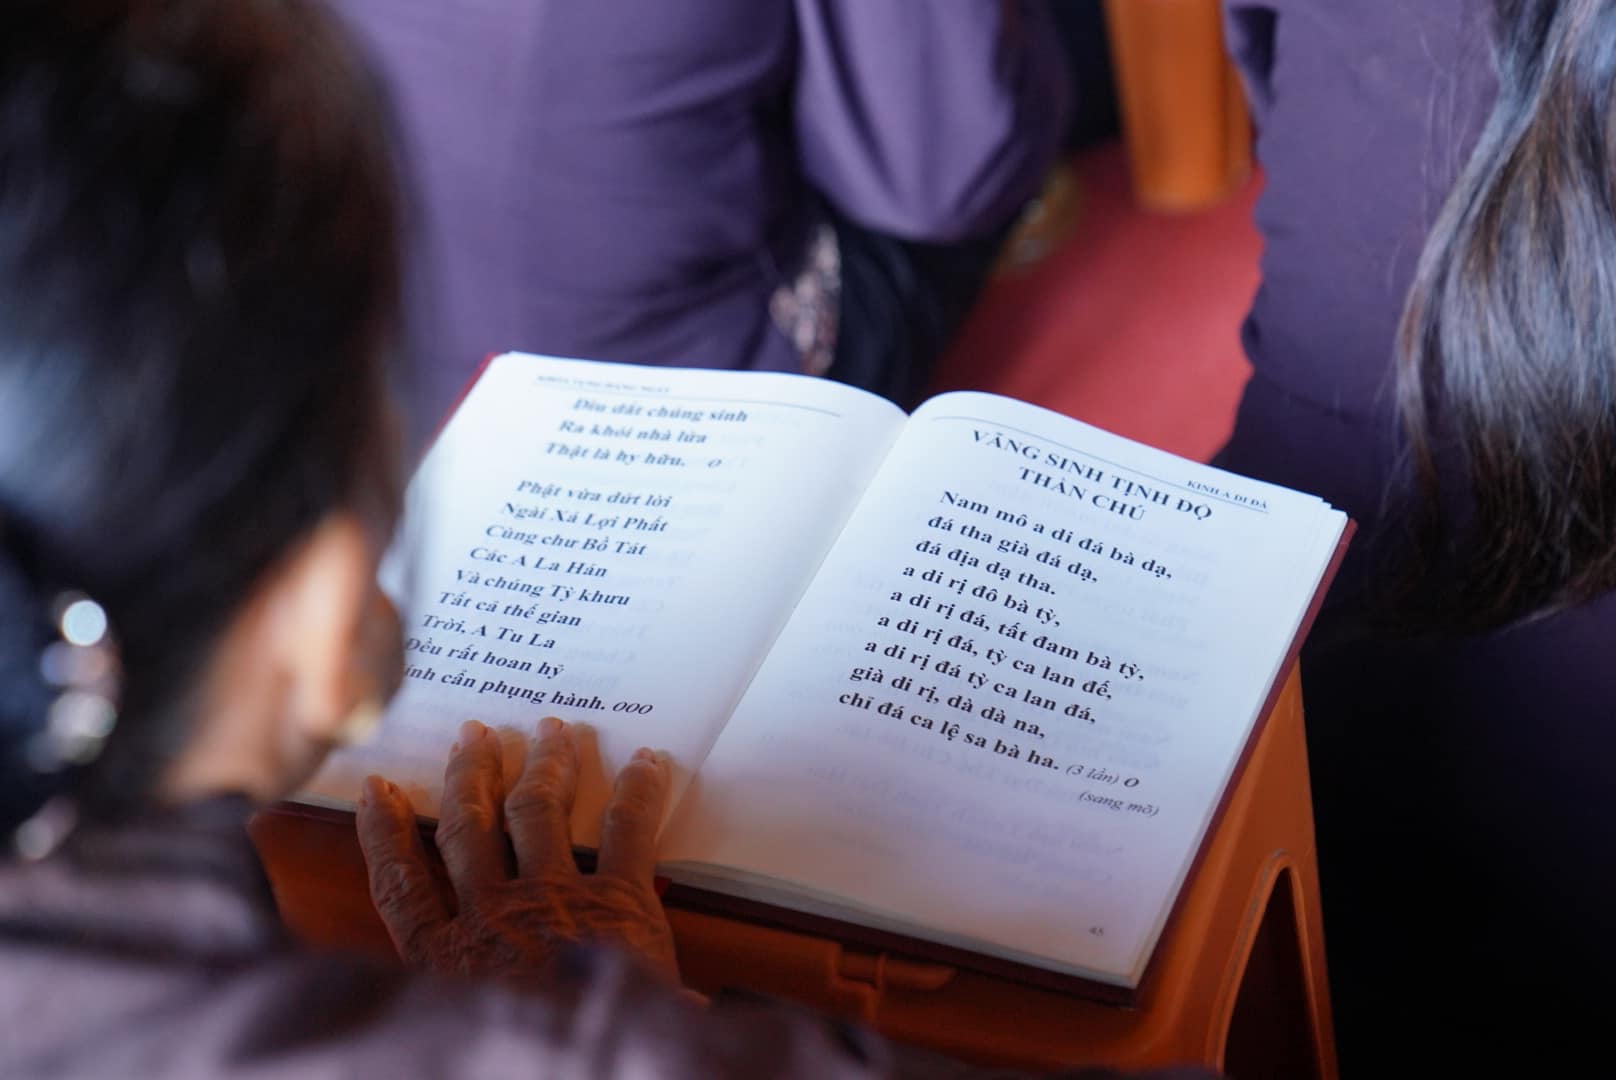 KHÓA TỤNG HẰNG NGÀY
Dìu dắt chúng sinh
Ra khỏi nhà lửa
Thật là hy hữu. o
Phật vừa dứt lời
Ngài Xá Lợi Phất
Cùng chư Bồ Tát
Các A La Hán
Và chúng Tỳ khưu
Tất cả thế gian
Trời, A Tu La
Đều rất hoan hỷ
ính cẩn phụng hành. ooo
KINH A DI ĐÀ
VÃNG SINH TỊNH ĐỘ
THẦN CHÚ
Nam mô a di đá bà dạ,
đá tha già đá dạ,
đá địa dạ tha.
a di rị đô bà tỳ,
a di rị đá, tất đam bà tỳ,
a di rị đá, tỳ ca lan đế,
a di rị đá tỳ ca lan đá,
già di rị, dà dà na,
chỉ đá ca lệ sa bà ha. (3 lần) o
(sang mõ)
45